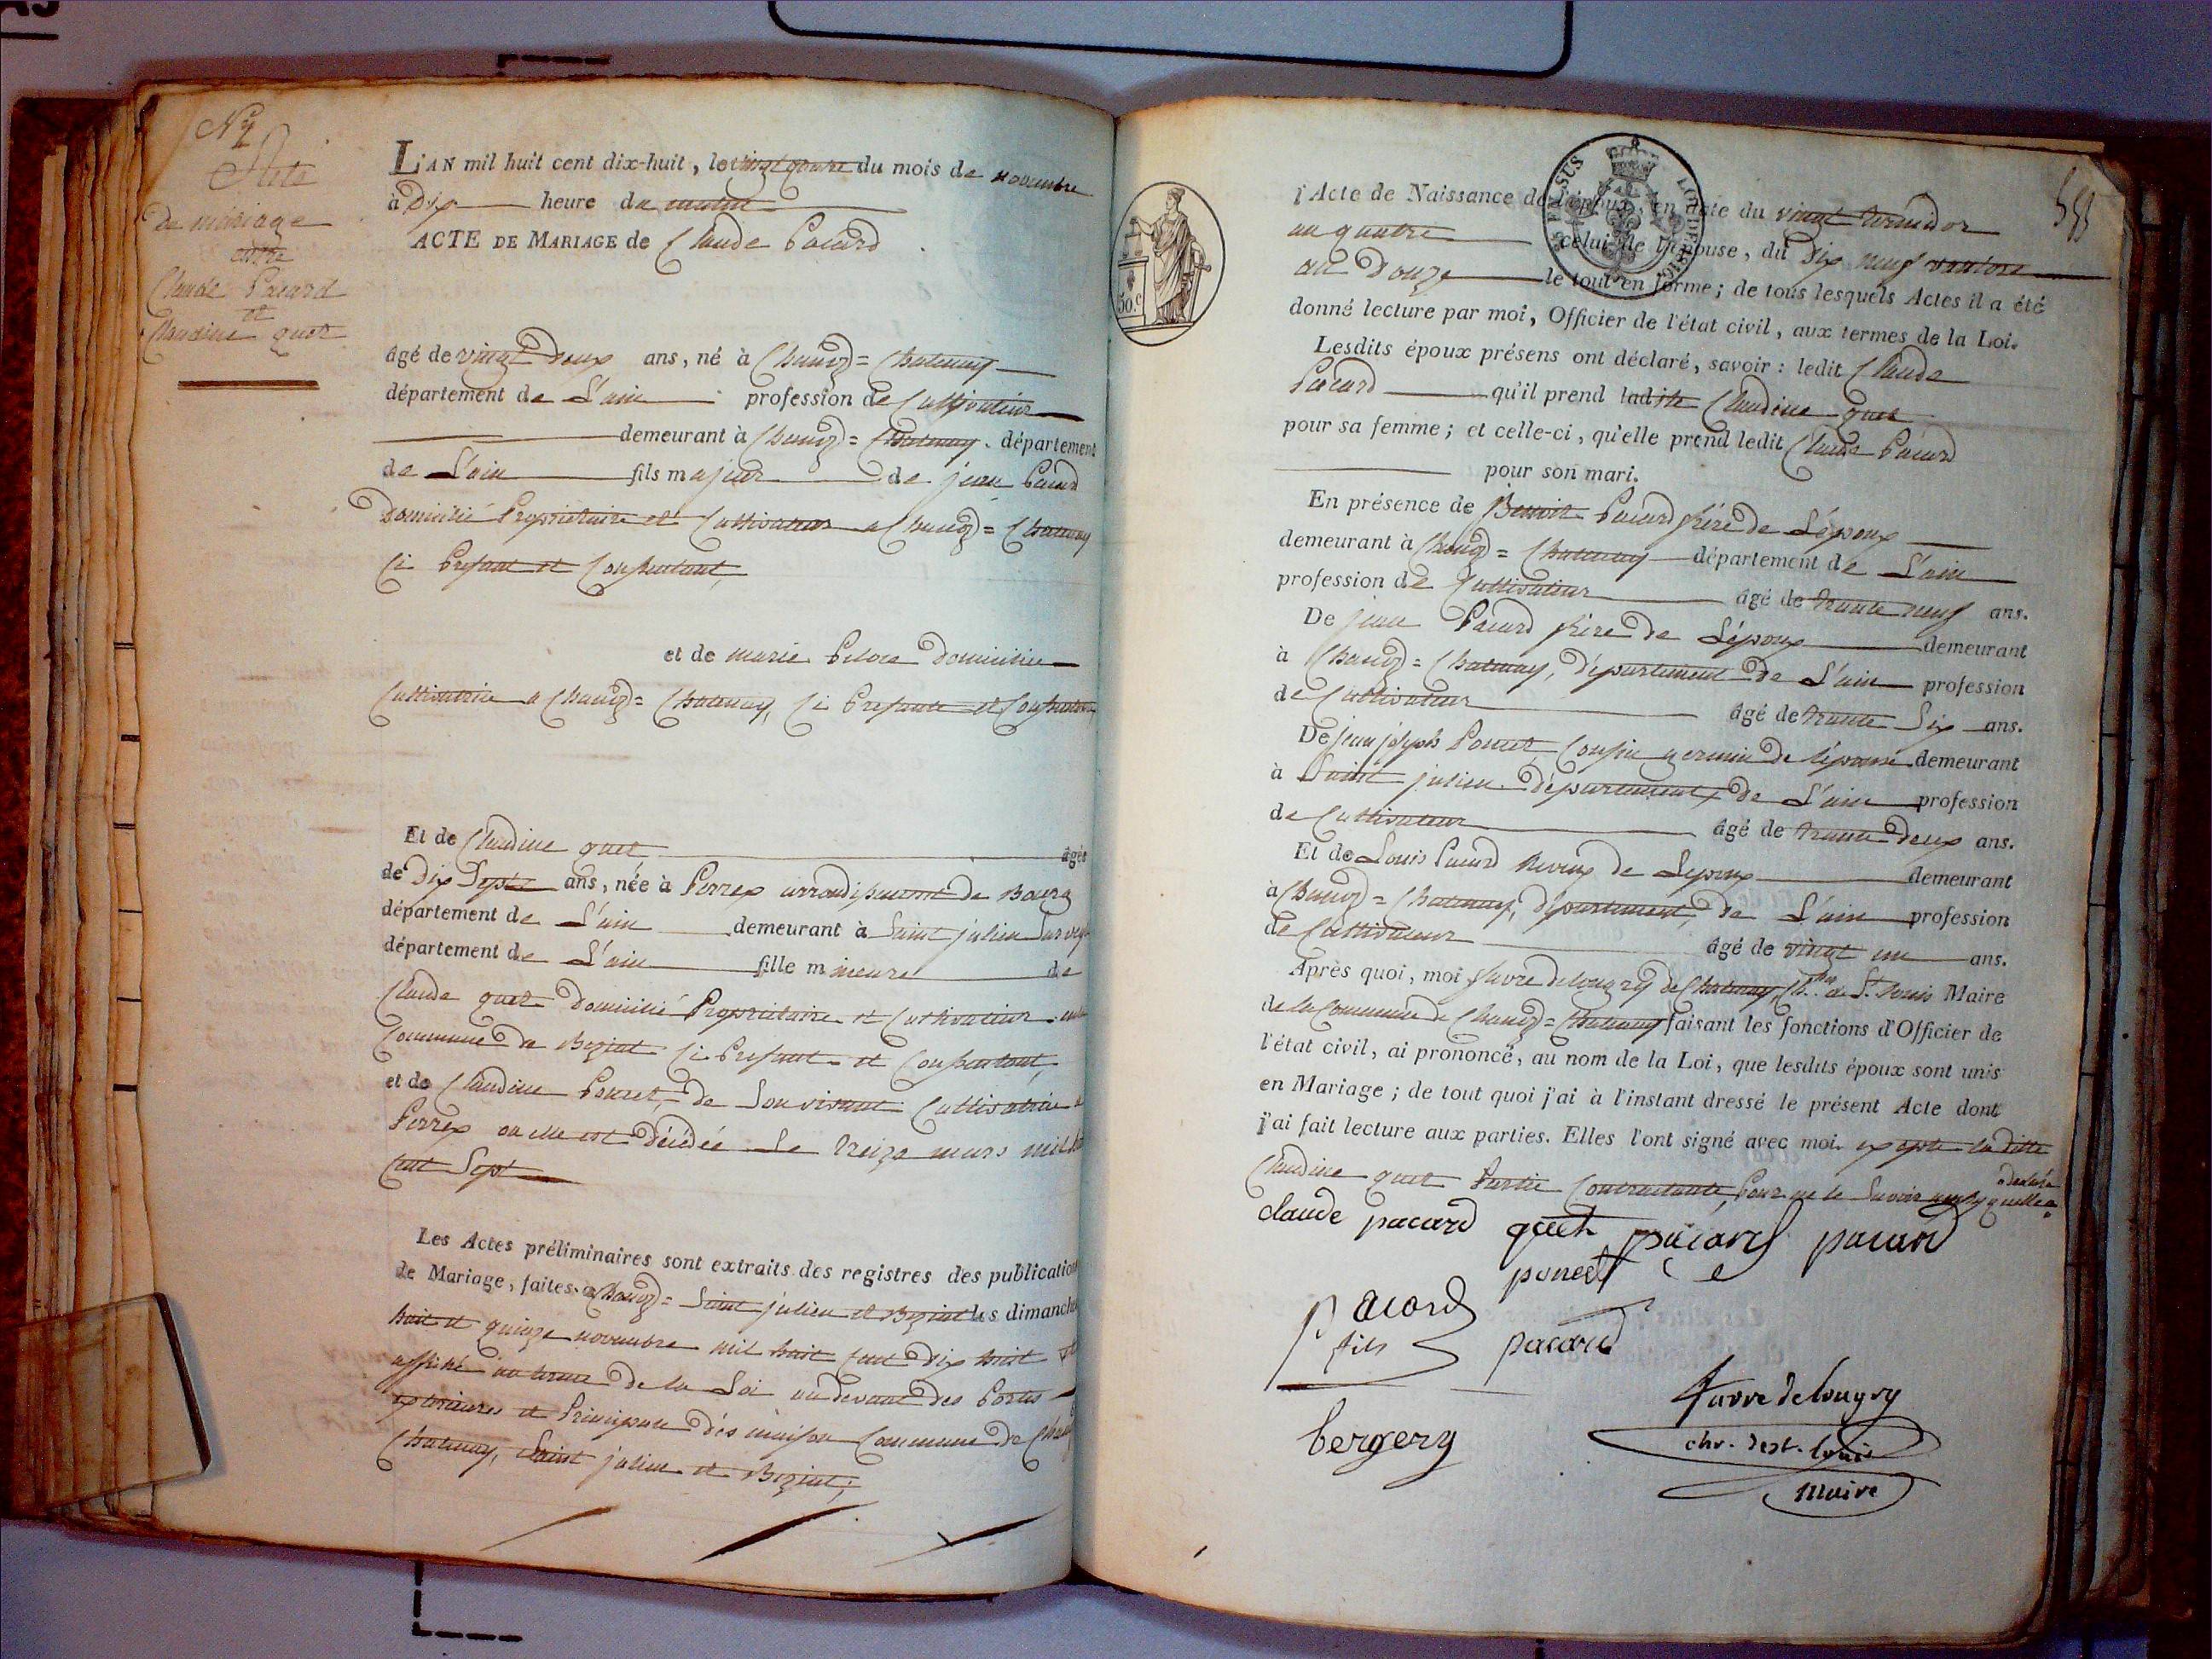 Acte
de mariage
entre
Claude Pacard
et
Claudine quet
L'AN mil huit cent dix-huit, le vingt quatre du mois de novembre
à Dix heure du matin
ACTE DE MARIAGE de Claude Pacard
âgé de vingt Deux ans, né à Chanoz = Chatenay
département de L'ain profession de Cultivateur
demeurant à Chanoz = Chatenay. département
de L'ain fils majeur de jean Pacard
Domicilié Propriétaire et Cultivateur a Chanoz = Chatenay
Ci Présant et Consentant,
et de marie Domiciliée
Cultivatrice a Chanoz = Chatenay, Ci Présante et Consentante
Et de Claudine quet âgée
de Dix Sept ans, née à Perrex arrondissement de Bourg
département de L'ain demeurant à Saint julien Sur
département de L'ain fille mineure de
Claude quet Domicilié Propriétaire et Cultivateur
Commune de Beziat Ci Présant et Consentant,
et de Claudine Poncet, De Son vivant Cultivatrice a
Perrex ou elle est Décédée Le Treize mars mil
Cent Sept
Les Actes préliminaires sont extraits des registres des publications
de Mariage, faites a Chanoz = Saint julien et Beziat les dimanches
huit et quinze novembre mil huit Cent Dix huit et
affiché au terme de la Loi au devant des Portes
exterieures et Principale des maison Commune de
Chatenay, Saint julien et Beziat;
50.C
l'Acte de Naissance de l'époux, en date du vingt
an quatre celui de l'épouse, du Dix neuf ventose
an Douze le tout en forme; de tous lesquels Actes il a été
donné lecture par moi, Officier de l'état civil, aux termes de la Loi.
Lesdits époux présens ont déclaré, savoir : ledit Claude
Pacard qu'il prend ladite Claudine quet
pour sa femme; et celle-ci, qu'elle prend ledit Claude Pacard
pour son mari.
En présence de Benoit Pacard frère De L'époux
demeurant à Chanoz = Chatenay département de L'ain
profession de Cultivateur âgé de trante neuf ans.
De jean Pacard frère De L'époux demeurant
à Chanoz = Chatenay, Département De L'ain profession
de Cultivateur âgé de trante Six ans.
De jean joseph Poncet Cousin germin De L'épouse demeurant
à Saint julien Département De L'ain profession
de Cultivateur âgé de trante Deux ans.
Et de Louis Pacard Neveux de Lepoux demeurant
à Chanoz = Chatenay, Département, De L'ain profession
de Cultivateur âgé de vingt un ans.
Après quoi, moi favre delongry de Chatenay, Ch. de St. Louis Maire
de la Commune de Chanoz = Chatenay faisant les fonctions d'Officier de
l'état civil, ai prononcé, au nom de la Loi, que lesdits époux sont unis
en Mariage; de tout quoi j'ai à l'instant dressé le présent Acte dont
j'ai fait lecture aux parties. Elles l'ont signé avec moi. exepté la ditte
Claudine quet Partie Contractante, Pour ne le Savoir quelle a
déclaré
claude pacard quet pacard pacard
poncet
Pacard
fils pacard
favre delongry
bergery chr. de st. louis
Maire